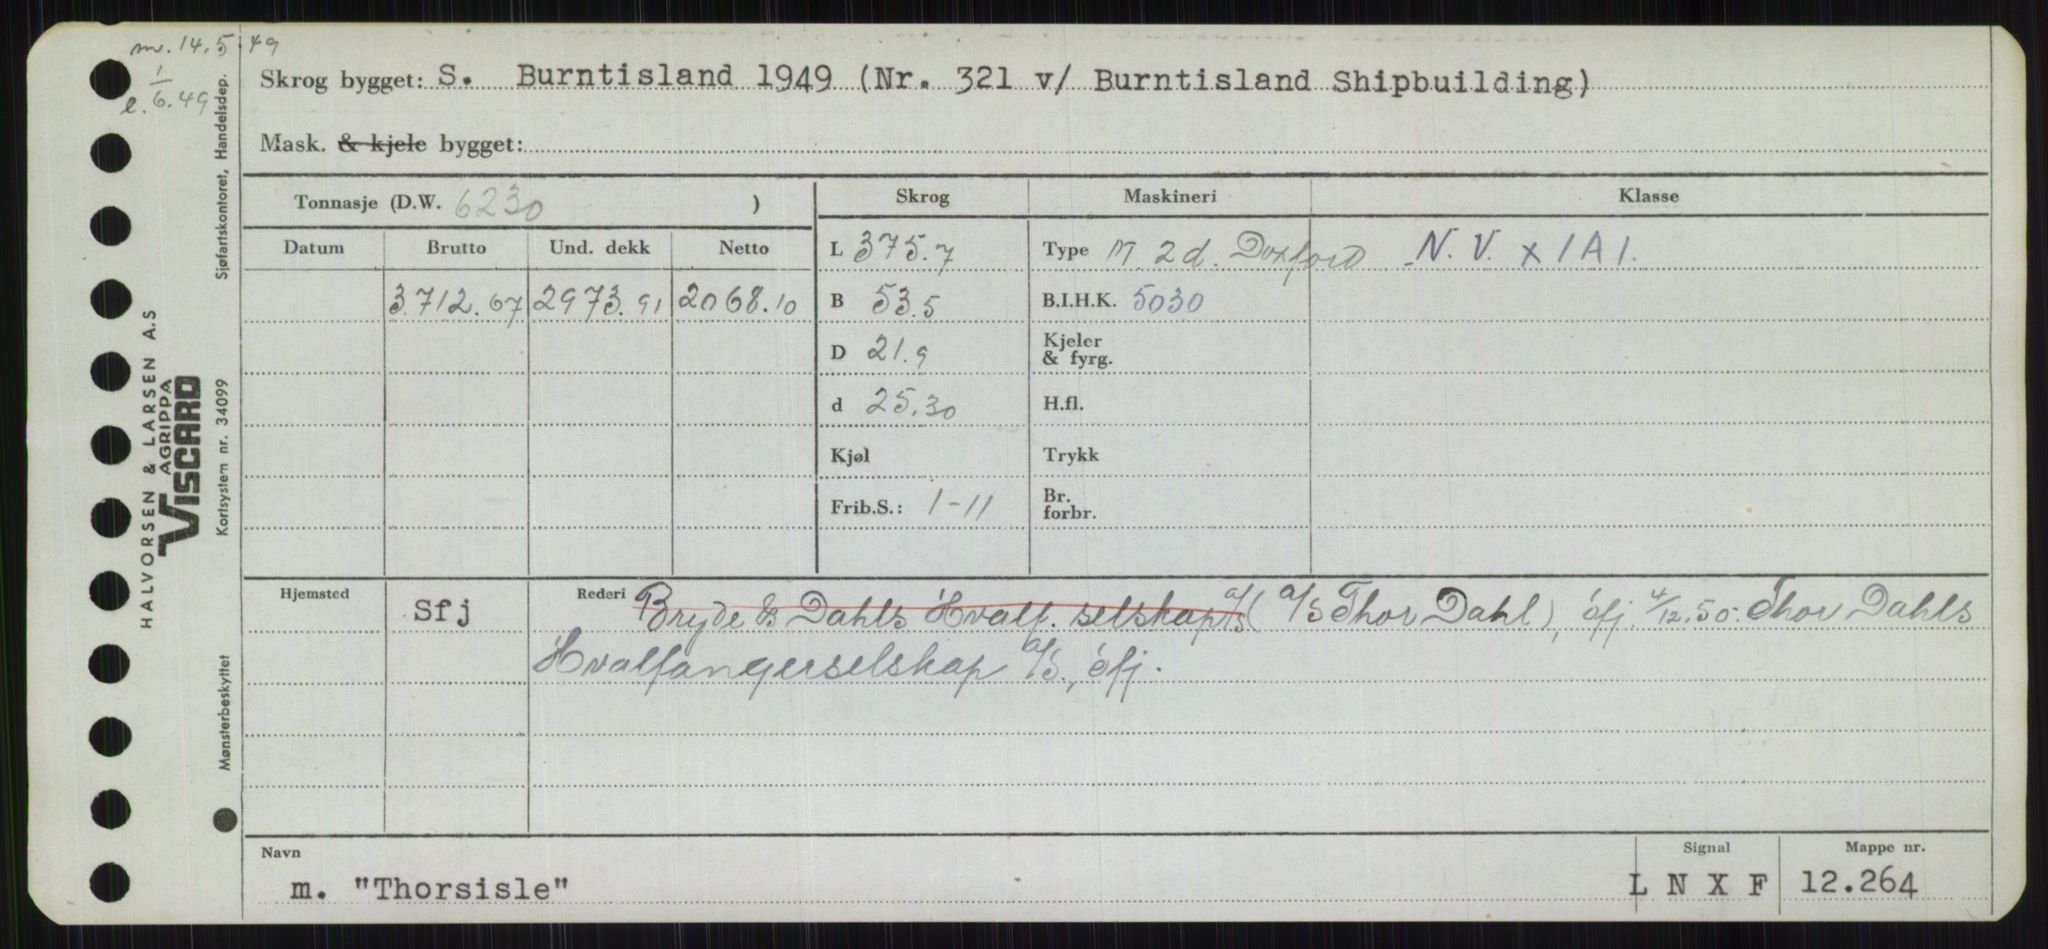 m. 14.5.49
l. 1/6.49
Skrog bygget: S. Burntisland 1949 (Nr. 321 v/ Burntisland Shipbuilding)
Mask. & kjele bygget:
Tonnasje (D.W. 6230 )
Skrog Maskineri Klasse
Datum Brutto Und. dekk Netto
3712.67 2973.91 2068.10
L 375.7 Type M 2 d. Doxford N.V. x 1A1.
B 53.5 B.I.H.K. 5030
D 21.9 Kjeler & fyrg.
d 25.30 H.fl.
Kjøl Trykk
Frib.S.: 1-11 Br. forbr.
Hjemsted Sfj Rederi Bryde & Dahls Hvalf. selskap a/s (a/s Thor Dahl), Sfj. 4/12.50: Thor Dahls
Hvalfangerselskap a/s., Sfj.
Navn Signal Mappe nr.
m. "Thorsisle" L N X F 12.264
HALVORSEN & LARSEN A.S
AGRIPPA
VISCARD
Mønsterbeskyttet Kortsystem nr. 34099 Sjøfartskontoret, Handelsdep.